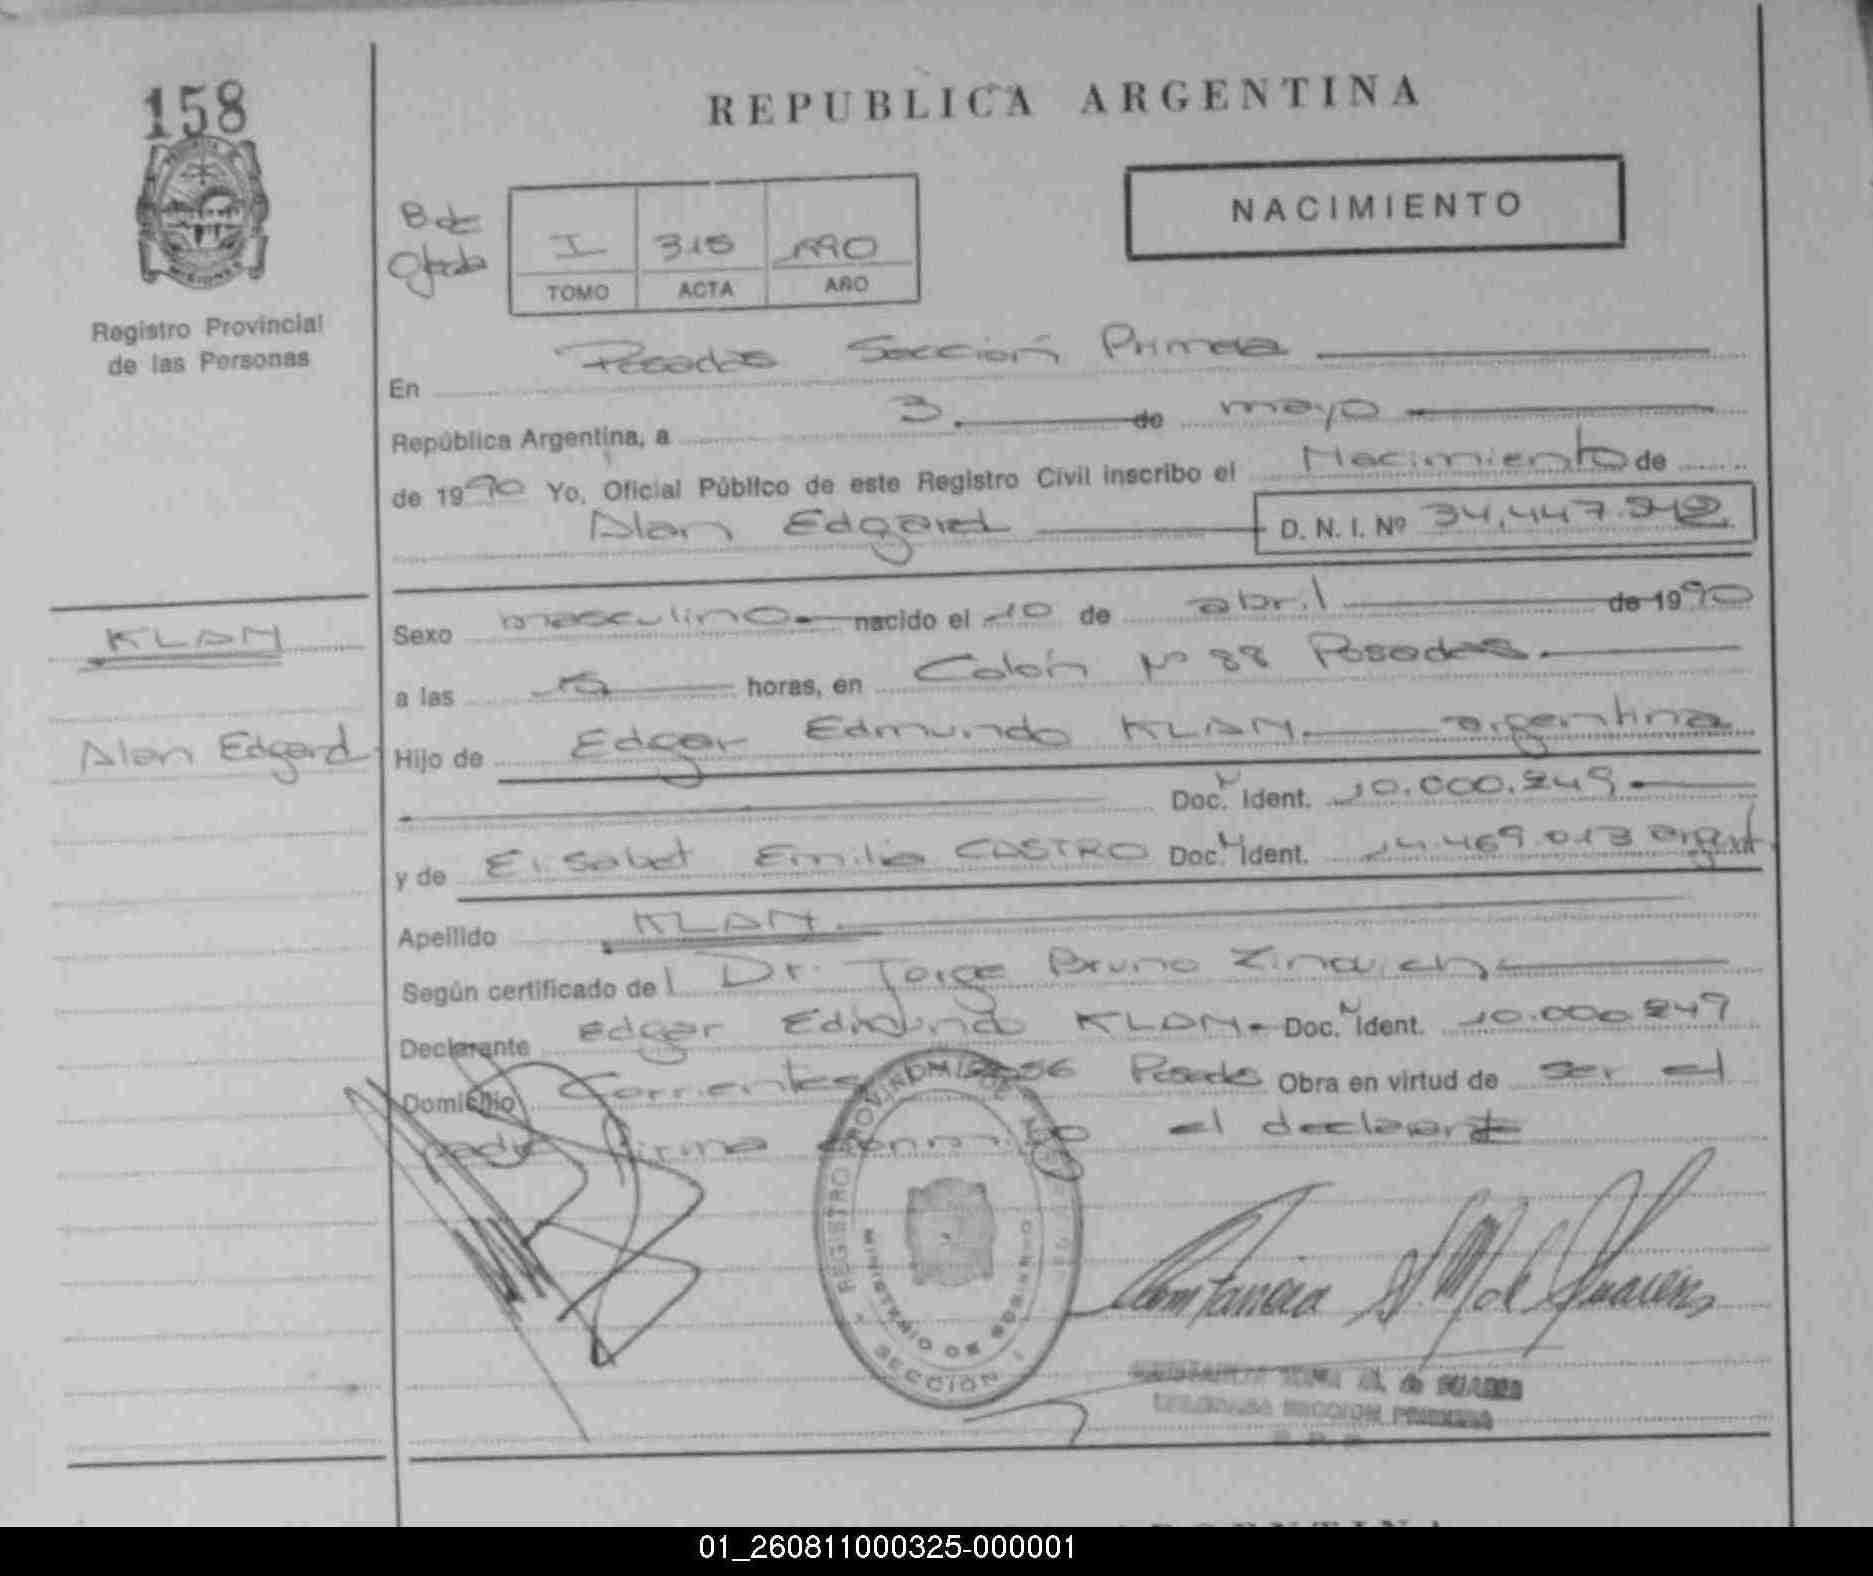 158
REPUBLICA ARGENTINA
NACIMIENTO
I 315 1990
TOMO ACTA AÑO
Registro Provincial
de las Personas
En Posadas Sección Primera
República Argentina, a 3 de mayo
de 1990 Yo, Oficial Público de este Registro Civil inscribo el Nacimiento de
Alan Edgard D. N. I. Nº 34.447.
KLAN
Alan Edgard
Sexo masculino nacido el 10 de abril de 1990
a las horas, en Colón Nº 88 Posadas
Hijo de Edgar Edmundo KLAN argentina
Doc. Ident. 10.000.249
y de Elisabet Emilia CASTRO Doc. Ident. 14.469.013 argent.
Apellido KLAN
Según certificado del Dr. Jorge Bruno
Declarante Edgar Edmundo KLAN Doc. Ident. 10.000.249
Domicilio Corrientes Posadas Obra en virtud de ser el
padre firma conmigo el declarante
REGISTRO PROVINCIAL DE LAS PERSONAS
MINISTERIO DE GOBIERNO
SECCION I
Constancia M. de Suarez
M. de SUAREZ
SECCION PRIMERA
01_260811000325-000001